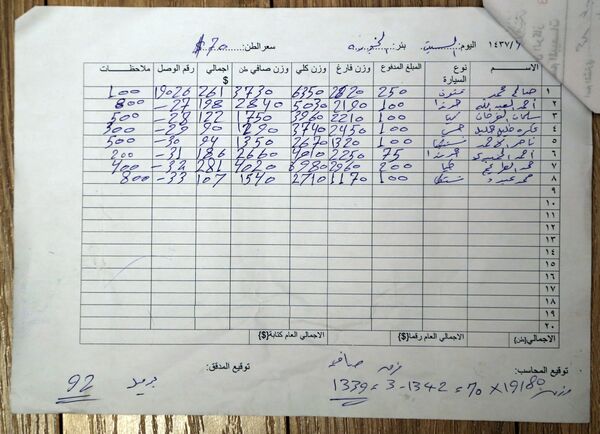 ١٤٣٧/٦ اليوم: السبت بئر: سعر الطن: 70 $
الاسم نوع السيارة المبلغ المدفوع وزن فارغ وزن كلي وزن صافي طن اجمالي $ رقم الوصل ملاحظات
١ صالح محمد 250 2620 6350 3730 261 19026 100
٢ احمد العبدالله 100 2190 5030 2840 198 27- 800
٣ سلمان الفرحان كيا 100 2210 3960 1750 122 28- 500
٤ 100 2450 3740 1290 90 29- 300
٥ ناصر الاحمد 100 1320 2670 1350 94 30- 500
٦ احمد الحميدي 75 2250 4910 2660 186 31- 200
٧ كيا 200 2960 6980 4020 281 32- 400
٨ محمد عبدو 100 1170 2710 1540 107 33- 800
٩
١٠
١١
١٢
١٣
١٤
١٥
١٦
١٧
١٨
١٩
٢٠
الاجمالي{طن} الاجمالي العام رقما{$} الاجمالي العام كتابة{$}
توقيع المحاسب: توقيع المدقق:
صافي
1339 = 3 - 1342 = 70 × 19180 وزن
92 بريد